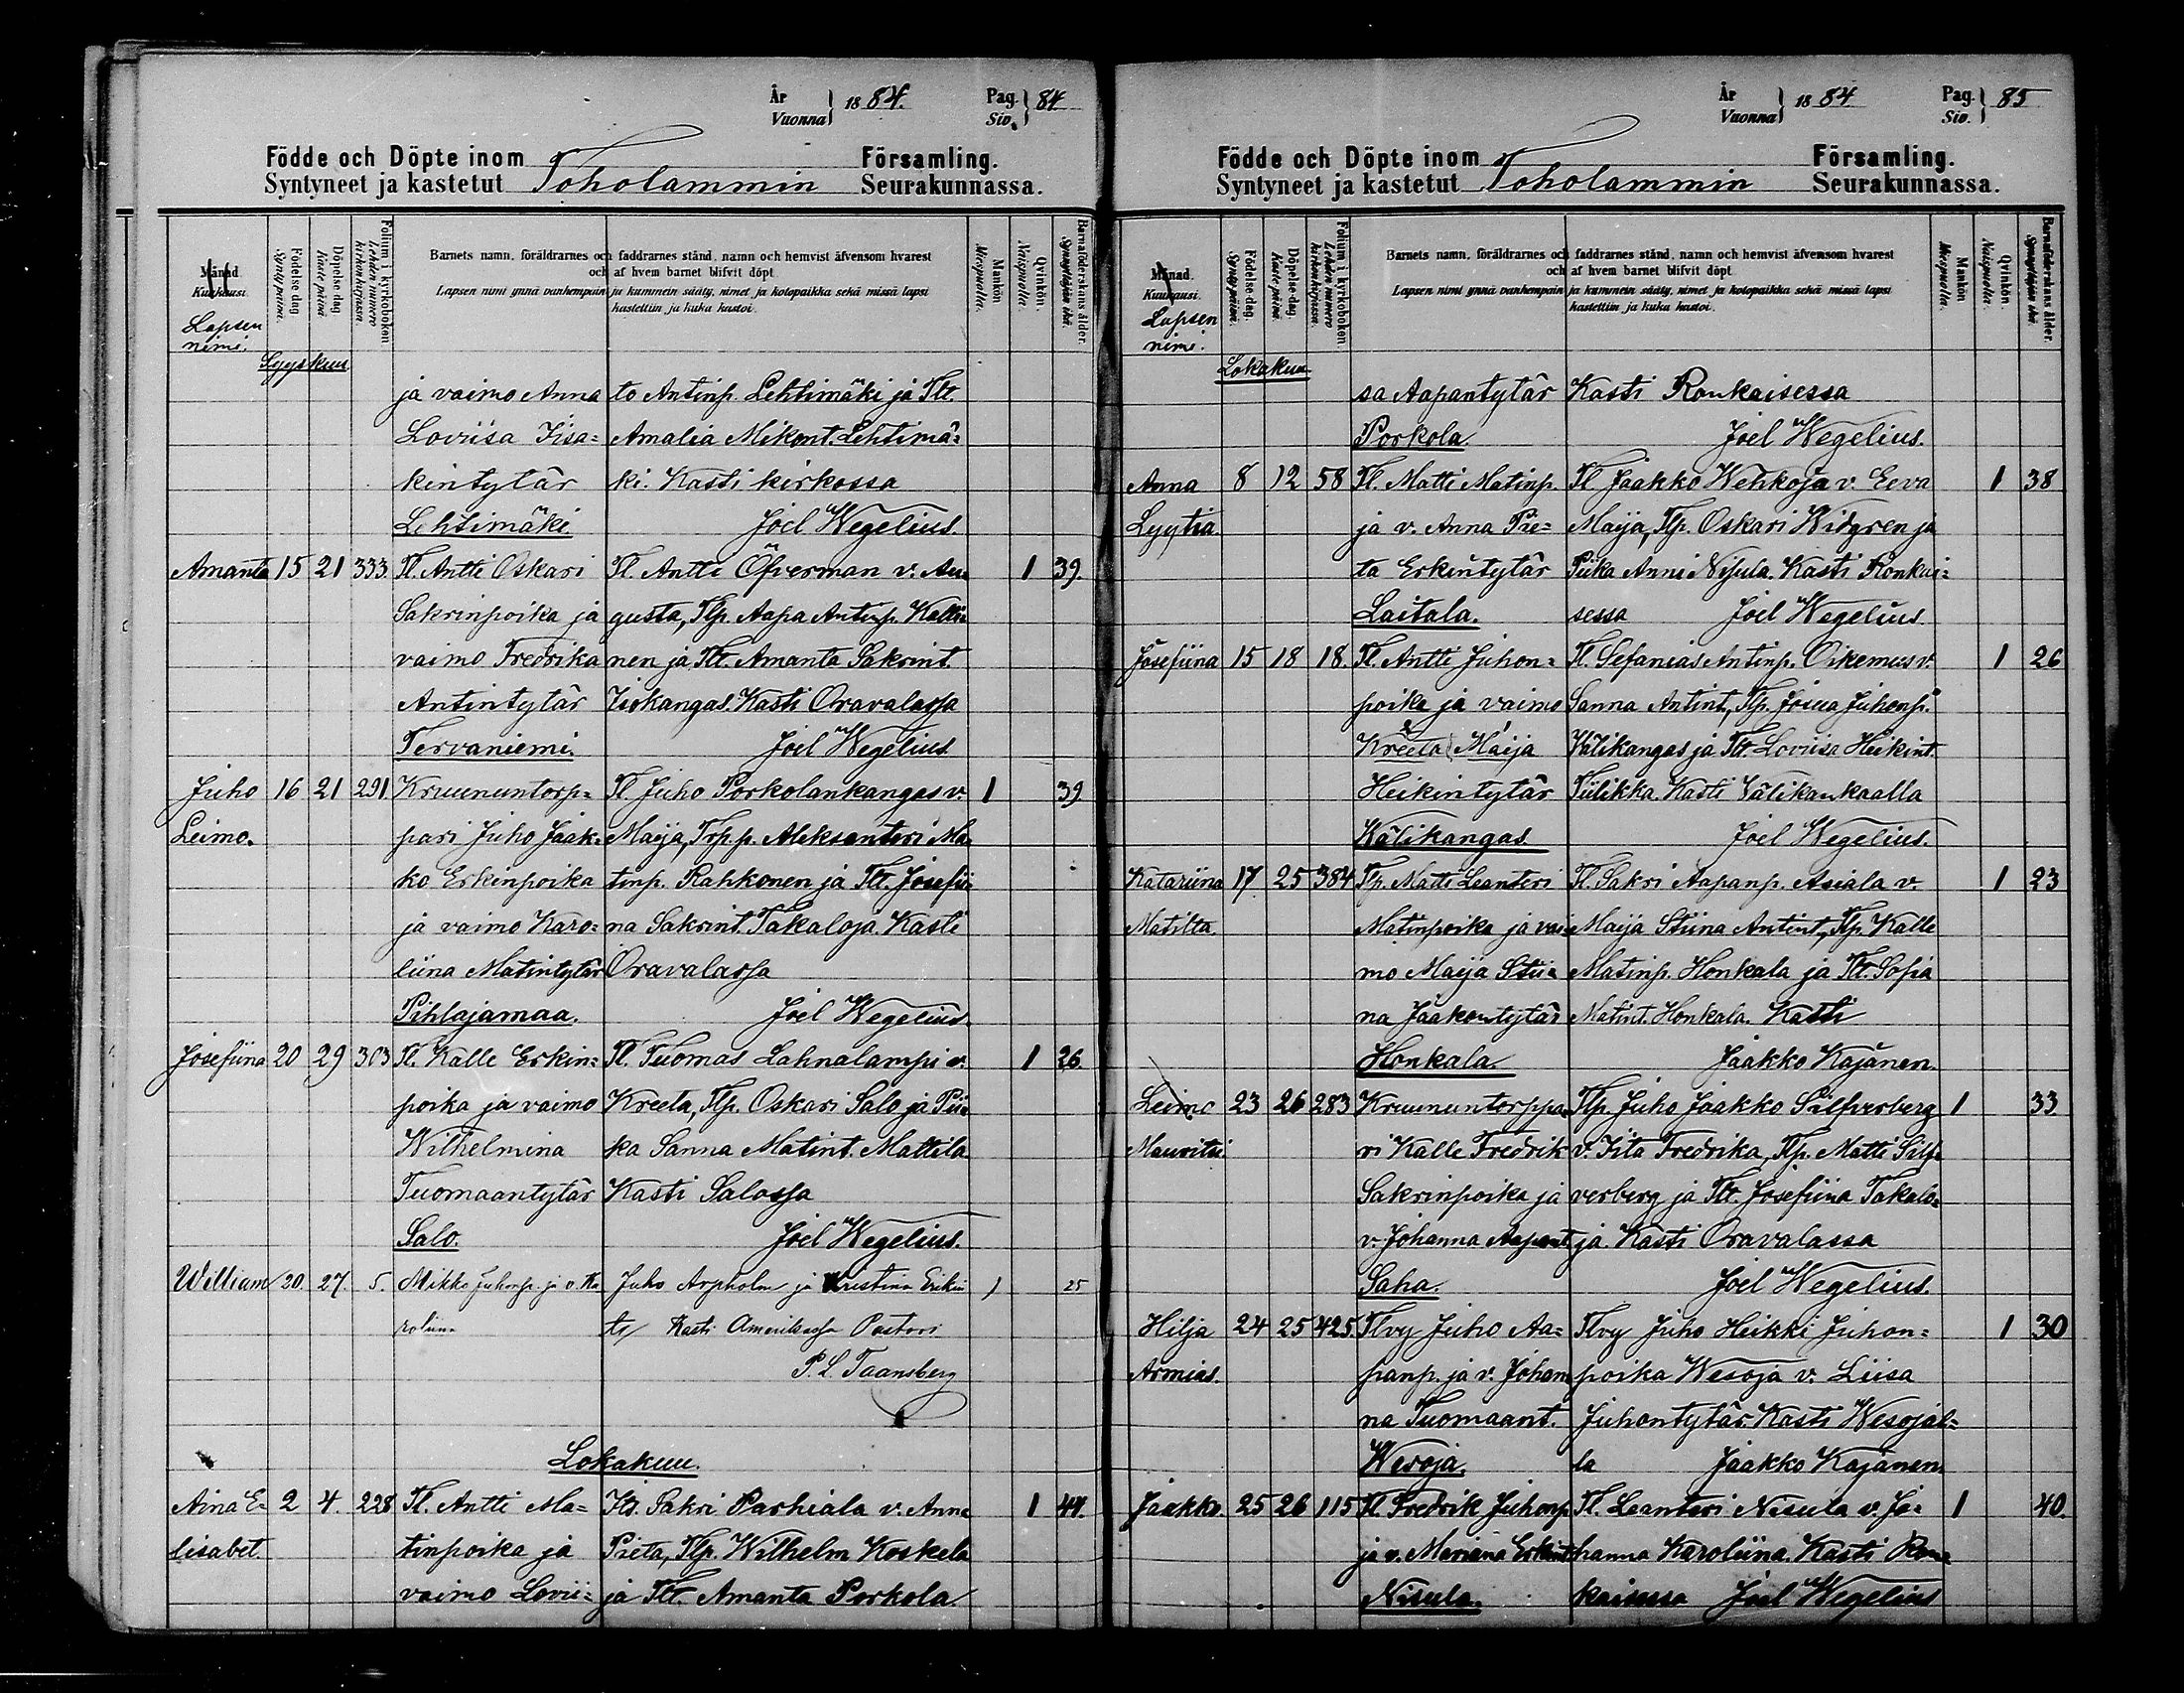 År
Vuonna } 1884. Pag. Siv. } 84
Födde och Döpte inom Församling.
Syntyneet ja kastetut Toholammin Seurakunnassa.
Månad.
Kuukausi.
Födelse-dag.
Syntypäivä.
Döpelse-dag.
Kastepäivä.
Folium i kyrkoboken
Lehden numero kirkonkirjassa
Barnets namn, föräldrarnes och faddrarnes stånd, namn och hemvist äfvensom hvarest
och af hvem barnet blifvit döpt.
Lapsen nimi ynnä vanhempain ja kummein sääty, nimet ja kotopaikka sekä missä lapsi
kastettiin ja kuka kastoi.
Mankön
Miespuolia.
Qvinkön.
Naispuolia.
Barnaföderskans ålder.
Synnyttäjän ikä.
Lapsen
nimi.
Syyskuu
ja vaimo Anna to Antinp. Lehtimäki ja Tlt.
Loviisa Iisa= Amalia Mikont. Lehtimä=
kintytär ki. Kasti kirkossa
Lehtimäki. Joel Wegelius.
Amanta 15 21 333. Tl. Antti Oskari Tl. Antti Öfverman v. Au= 1 39.
Sakrinpoika ja gusta, Tlp. Aapa Antinp. Kalli=
vaimo Fredrika nen ja Tlt. Amanta Sakrint.
Antintytär Isokangas. Kasti Oravalassa
Tervaniemi. Joel Wegelius
Juho 16 21 291. Kruununtorp= Tl. Juho Porkolankangas v. 1 39
Leimo. pari Juho Jaak= Maija, Trp.p. Aleksanteri Ma=
ko Erkinpoika tinp. Rahkonen ja Tlt. Josefii=
ja vaimo Karo= na Sakrint. Takaloja. Kasti
liina Matintytär Oravalassa
Pihlajamaa. Joel Wegelius.
Josefiina 20 29 303 Tl. Kalle Erkin= Tl. Tuomas Lahnalampi v. 1 26.
poika ja vaimo Kreeta, Tlp. Oskari Salo ja Pii=
Wilhelmina ka Sanna Matint. Mattila
Tuomaantytär Kasti Salossa
Salo. Joel Wegelius.
William 20. 27. 5. Mikko Juhonp. ja v. Ka Juho Arpholm ja Kristina Erikin 1 25
roliina ts/ Kasti Amerikassa Pastori
P. L. Taansberg
Lokakuu.
Aina E= 2 4. 228 Tl. Antti Ma= Its. Sakri Parhiala v. Anna 1 44.
lisabet. tinpoika ja Pieta, Tlp. Wilhelm Koskela
vaimo Lovii= ja Tlt. Amanta Porkola.
År
Vuonna } 1884 Pag. Siv. } 85
Födde och Döpte inom Församling.
Syntyneet ja kastetut Toholammin Seurakunnassa.
Månad.
Kuukausi.
Födelse-dag.
Syntypäivä.
Döpelse-dag.
Kastepäivä.
Folium i kyrkoboken
Lehden numero kirkonkirjassa
Barnets namn, föräldrarnes och faddrarnes stånd, namn och hemvist äfvensom hvarest
och af hvem barnet blifvit döpt.
Lapsen nimi ynnä vanhempain ja kummein sääty, nimet ja kotopaikka sekä missä lapsi
kastettiin ja kuka kastoi.
Mankön
Miespuolia.
Qvinkön.
Naispuolia.
Barnaföderskans ålder.
Synnyttäjän ikä.
Lapsen
nimi.
Lokakuu
sa Aapantytär Kasti Ronkaisessa
Porkola. Joel Wegelius.
Anna 8 12 58 Tl. Matti Matinp. Tl Jaakko Wehkoja v. Eeva 1 38
Lyytia. ja v. Anna Pie= Maija, Tlp. Oskari Widgren ja
ta Erkintytär Piika Anni Nisula. Kasti Ronkai=
Laitala. sessa Joel Wegelius
Josefiina 15 18 18. Tl. Antti Juhon= Tl. Sefanias Antinp. Oikemus v. 1 26
poika ja vaimo Sanna Antint, Tlp. Josua Juhonp.
Kreeta Maija Välikangas ja Tlt. Loviisa Heikint.
Heikintytär Piilikka. Kasti Välikankaalla
Wälikangas. Joel Wegelius.
Katariina 17 25 384 Tlp. Matti Leanteri Tl. Sakri Aapanp. Asiala v. 1 23
Matilta. Matinpoika ja vai= Maija Stiina Antint, Tlp. Kalle
mo Maija Stii= Matinp. Honkala ja Tlt. Sofia
na Jaakontytär Matint. Honkala. Kasti
Honkala. Jaakko Kajanen.
Leimo 23 26 283 Kruununtorppa= Tlp. Juho Jaakko Silfverberg 1 33
Mauritsi. ri Kalle Fredrik v. Iita Fredrika, Tlp. Matti Silf=
Sakrinpoika ja verberg ja Tlt. Josefiina Takalo=
v. Johanna Aapant ja. Kasti Oravalassa
Saha. Joel Wegelius.
Hilja 24 25 425. Tlvy Juho Aa= Tlvy Juho Heikki Juhon= 1 30
Armias. panp. ja v. Johan= poika Wesoja v. Liisa
na Tuomaant. Juhontytär. Kasti Wesojal=
Wesoja. la Jaakko Kajanen.
Jaakko. 25 26 115 Tl. Fredrik Juhonp. Tl. Leanteri Nisula v. Jo= 1 40.
ja v. Mariana Erkint hanna Karoliina. Kasti Ron=
Nisula. kaisessa Joel Wegelius